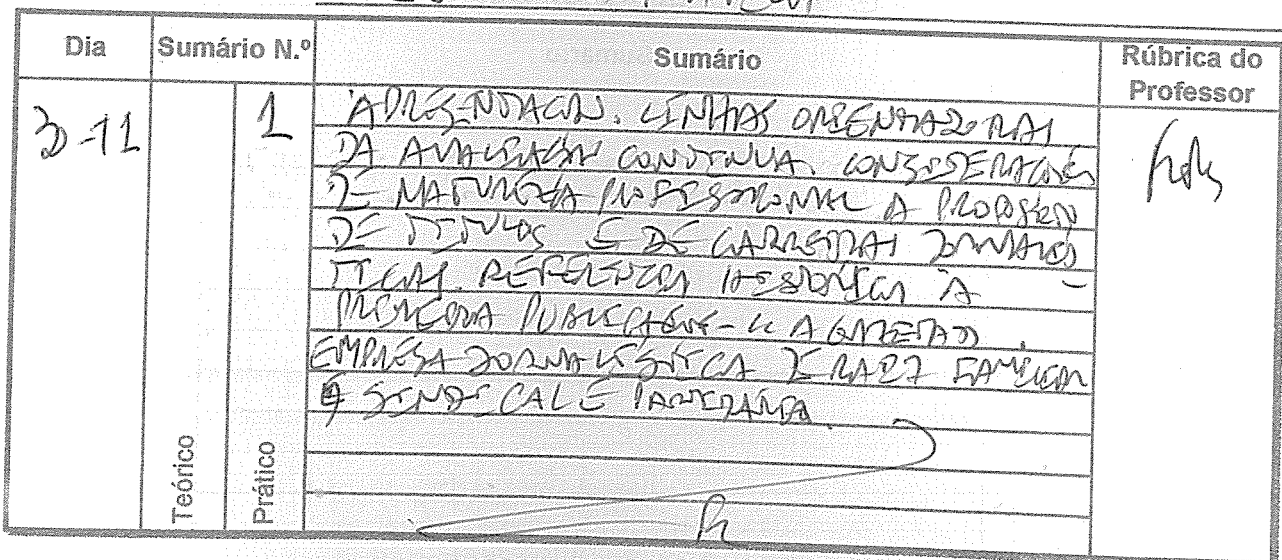 Dia Sumário N.º Sumário Rúbrica do Professor
3-11 1 APRESENTAÇÃO. LINHAS ORIENTADORAS
DA AVALIAÇÃO CONTINUA. CONSIDERAÇÕES
DE NATUREZA PROFISSIONAL A PROPÓSITO
DE TITULOS E DE CARREIRAS JORNALIS
TICAS. REFERENCIA HISTÓRICA À
PRIMEIRA PUBLICAÇÃO - "A GAZETA".
EMPRESA JORNALISTICA DE RAIZ FAMILIAR
SINDICAL E PARTIDÁRIA.
Teórico
Prático